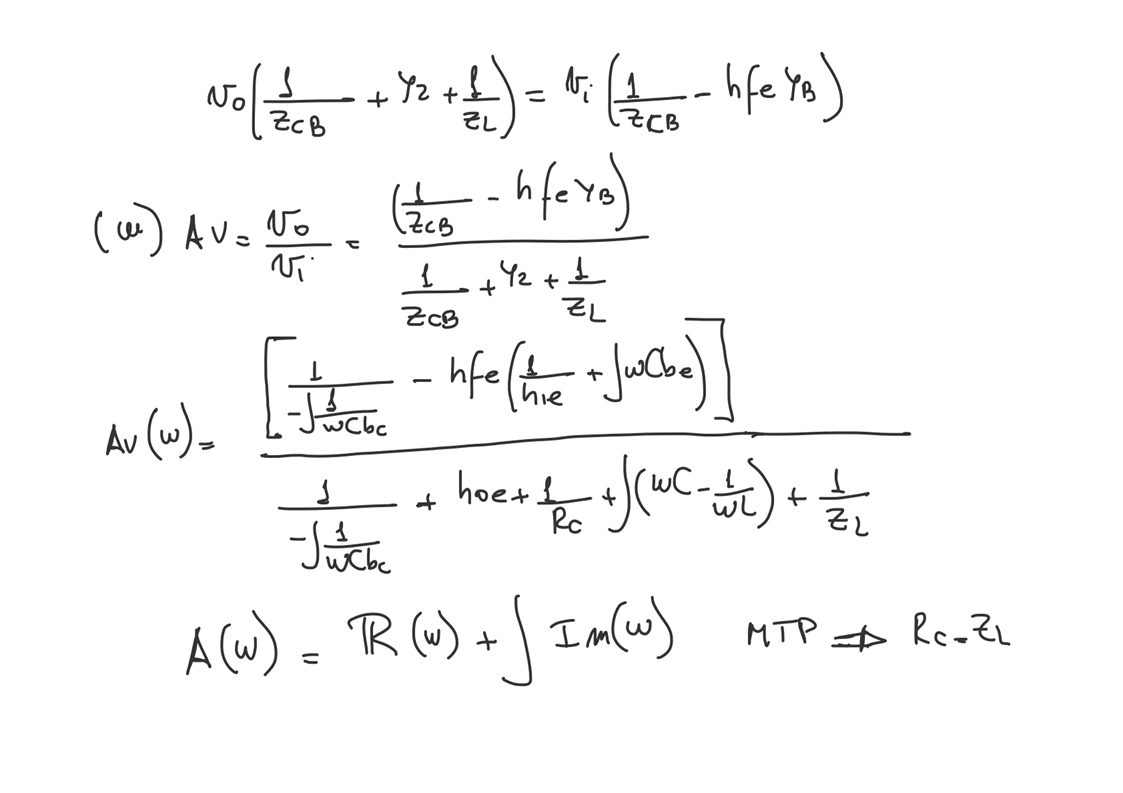 Vo(1/ZCB + Y2 + 1/ZL) = Vi(1/ZCB - hfe YB)
(w) AV = Vo/Vi = (1/ZCB - hfe YB) / (1/ZCB + Y2 + 1/ZL)
Av(w) = [1/(-j 1/wCbc) - hfe(1/hie + jwCbe)] / (1/(-j 1/wCbc) + hoe + 1/Rc + j(wC - 1/wL) + 1/ZL)
A(w) = ℝ(w) + j Im(w) MTP ⇒ Rc = ZL